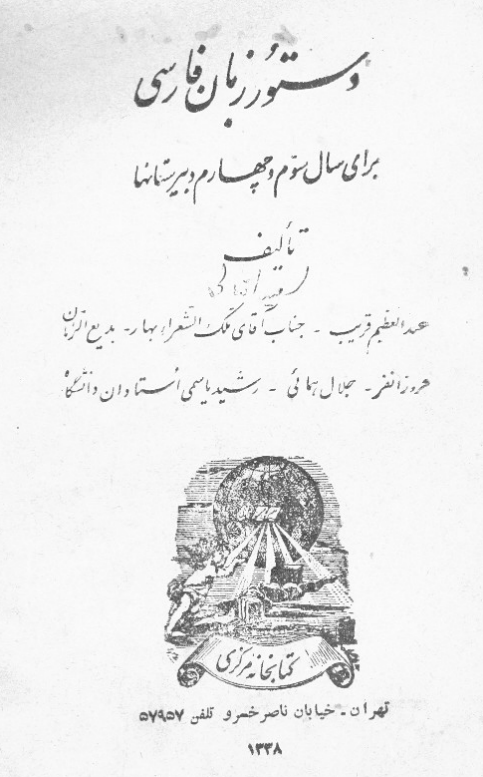 دستور زبان فارسی
برای سال سوّم و چهارم دبیرستانها
تألیف
عبدالعظیم قریب - جناب آقای ملک الشعراء بهار - بدیع الزّمان
فروزانفر - جلال همائی - رشید یاسمی اُستادان دانشگاه
کتابخانه مرکزی
تهران - خیابان ناصر خسرو تلفن ۵۷۹۵۷
۱۳۳۸